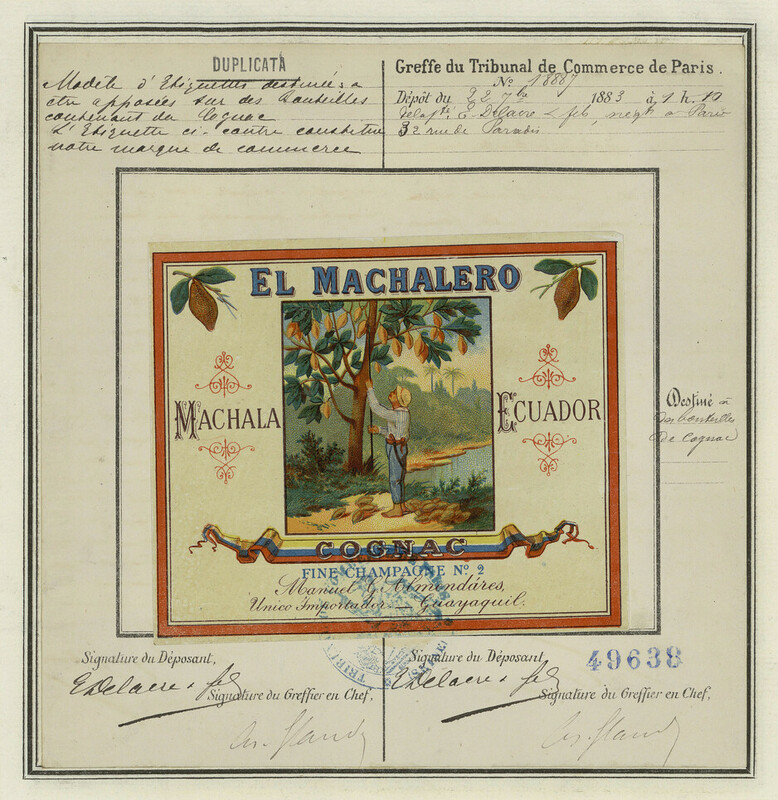 DUPLICATA
Modèle d'Etiquettes destinées à
être apposées sur des Bouteilles
contenant du Cognac
L'Etiquette ci-contre constitue
notre marque de commerce
Greffe du Tribunal de Commerce de Paris.
No 18887
Dépôt du 22 7bre 1883 à 1 h.
E. Delacre & fils, negts à Paris
32 rue de Paradis
EL MACHALERO
MACHALA
ECUADOR
COGNAC
FINE CHAMPAGNE No. 2
Manuel G. Almendáres,
Unico Importador — Guayaquil.
Destiné à
des bouteilles
de Cognac
Signature du Déposant,
E Delacre & fils
Signature du Greffier en Chef,
Signature du Déposant,
E Delacre & fils
Signature du Greffier en Chef,
49638